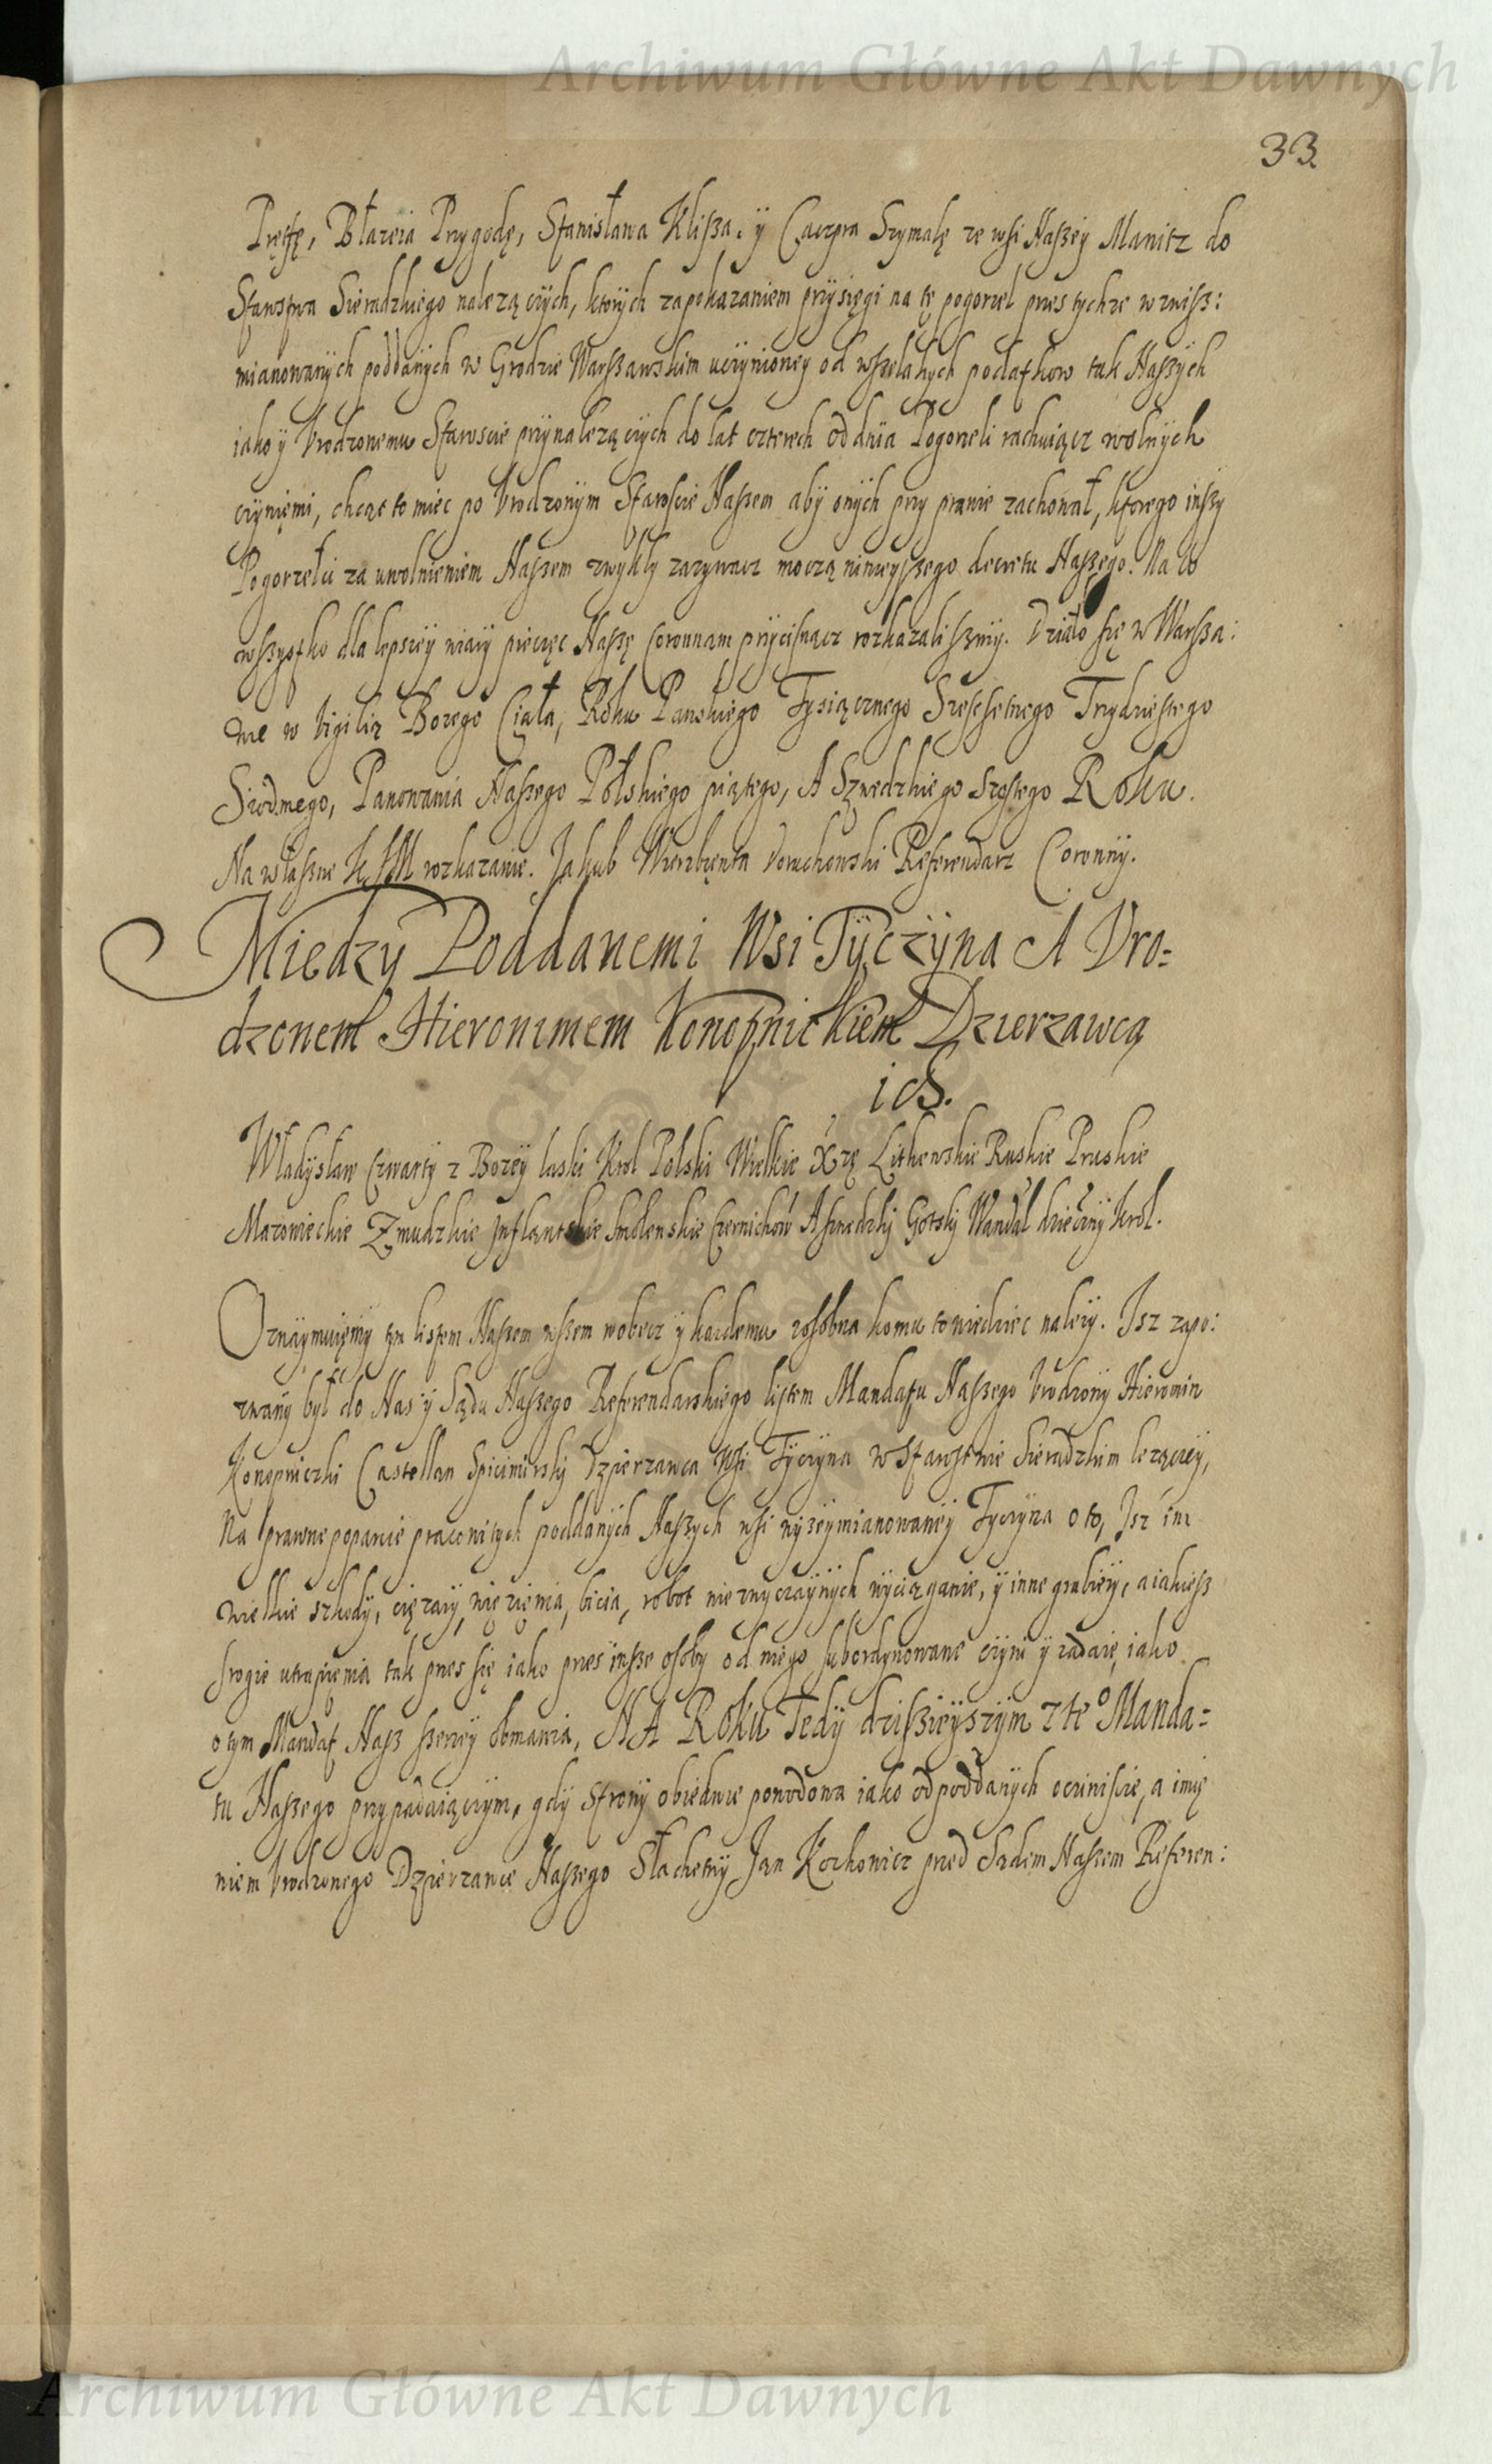 Archiwum Główne Akt Dawnych
33.
Pręttę, Błazeia Przygodę, Stanisława Klisza, y Cacpra Szymalę ze wsi Naszey Manicz do
Starostwa Sieradzkiego nalezących, ktorych za pokazaniem przysięgi na tę pogorzel przes tychze wzwisz:
mianowanych poddanych w Grodzie Warszawskim uczynioney od wszelakych podatkow tak Naszych
iako y Urodzonemu Staroscie przynalezących do lat czterech od dnia Pogorzeli rachuiącz wolnych
czyniemi, chcąc to miec po Urodzonym Staroscie Naszem aby onych przy prawie zachował, ktorego inszy
Pogorzelci za uwolnieniem Naszem zwykly zazywacz moczą ninieyszego decretu Naszego. Na to
wszystko dla lepszey wiary pieczęc Naszę Coronnam przycisnącz rozkazaliszmy. Działo się w Warsza:
wie w Vigilią Bozego Ciała, Roku Panskiego Tysiącznego Szescsetnego Trzydziestego
Siodmego, Panowania Naszego Polskiego piątego, A Szwedzkiego szostego Roku.
Na własne K J M rozkazanie. Jakub Wierzbięnta Doruchowski Referendarz Coronny.
Miedzy Poddanemi Wsi Tyczyna A Vro=
dzonem Hieronimem Konopnickiem Dzierzawcą
ich.
Władysław Czwarty z Bozey laski Krol Polski Wielkie Xzę Lithewskie Ruskie Pruskie
Mazowieckie Zmudzkie Inflantskie Smolenskie Czernichow A Szwedzky Gotsky Wandal dzieczny Krol.
Oznaymuięmy tym listem Naszem wszem wobecz y kazdemu zosobna komu to wiedziec nalezy. Isz zapo:
zwany był do Nas y Sądu Naszego Referendarskiego listem Mandatu Naszego Urodzony Hieronim
Konopniczki Castellan Spicimirsky Dzierzawca Wsi Tyczyna w Starostwie Sieradzkim lezączey,
Na prawne poparcie pracowitych poddanych Naszych wsi wyzeymianowaney Tyczyna o to, Isz im
wielkie szkody, ciężary, więzięnia, bicia, robot niezwyczaynych wyciąganie, y inne grabieży, a iakiesz
srogie utrapienia tak przes się iako przes insze osoby od niego subordynowane czyni y zadaie, iako
o tym Mandat Nasz szerzey obmawia, NA Roku Tedy dziszieyszym z te° Manda=
tu Naszego przypadaiączym, gdy Strony obiedwie powodowa iako od poddanych oczwiscie, a imię
niem Urodzonego Dzierzawce Naszego Słachetny Jan Kochowicz przed Sądem Naszem Referen:
Archiwum Główne Akt Dawnych